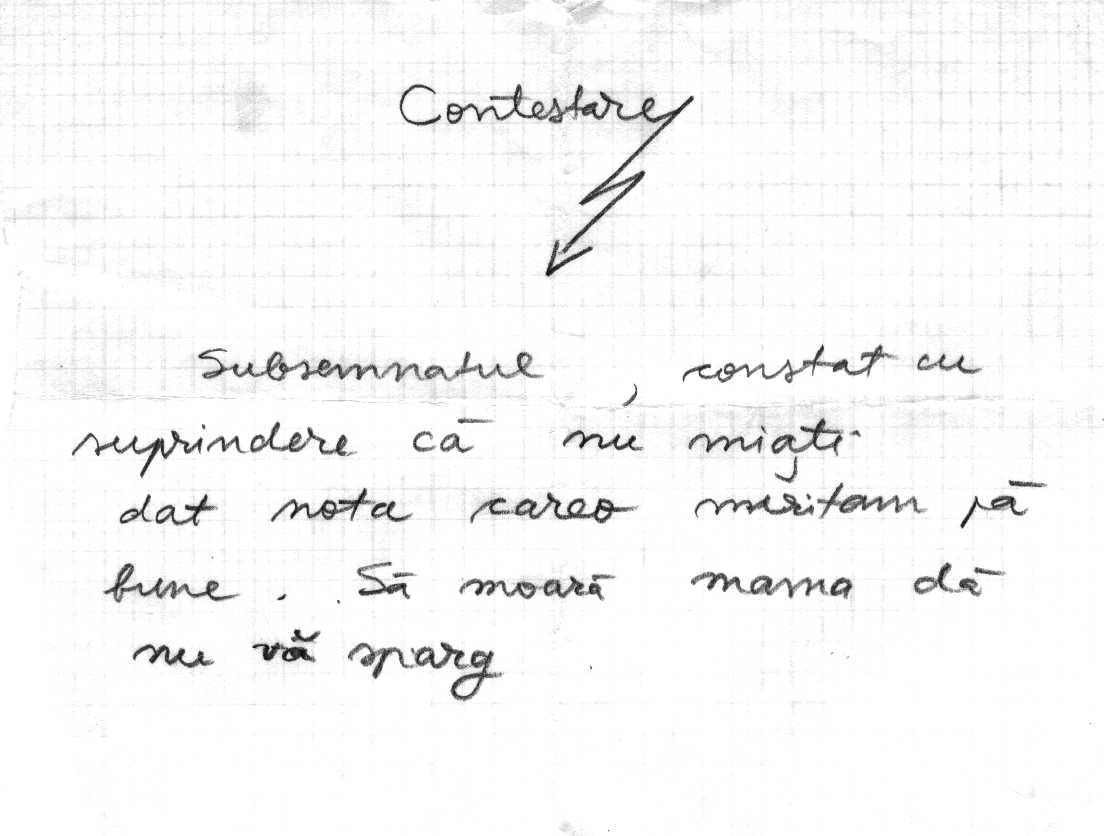 Contestare
Subsemnatul , constat cu
suprindere cā nu miați
dat nota careo meritam pā
bune . Sā moarā mama dā
nu vă sparg